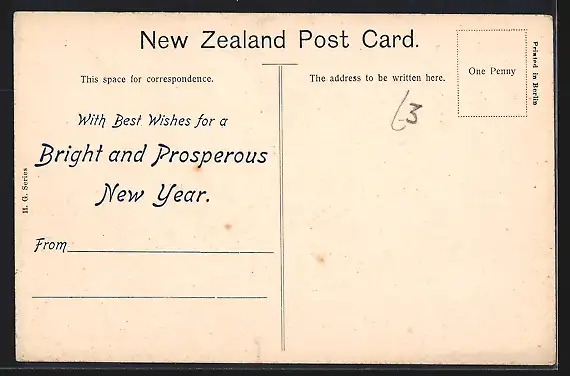 New Zealand Post Card.
This space for correspondence.
The address to be written here.
One Penny
Printed in Berlin
With Best Wishes for a
Bright and Prosperous
New Year.
H. G. Series
From
63